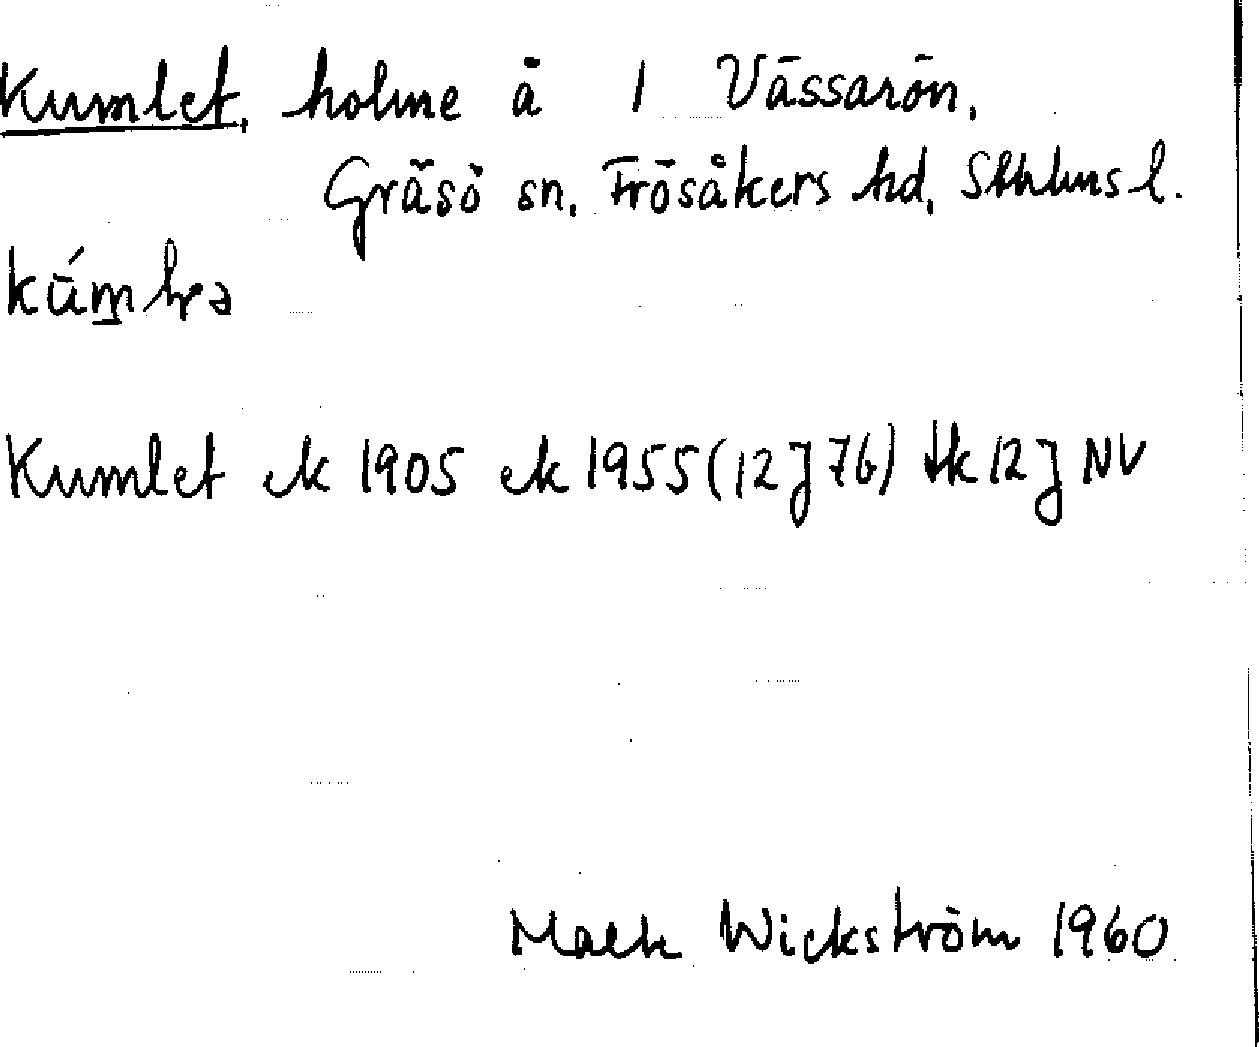 Kumlet, holme å 1 Vässarön,
Gräsö sn, Frösåkers hd, Sthlms l.
Kumlet ek 1905 ek 1955 (12J 76) tk 12J NV
Wickström 1960